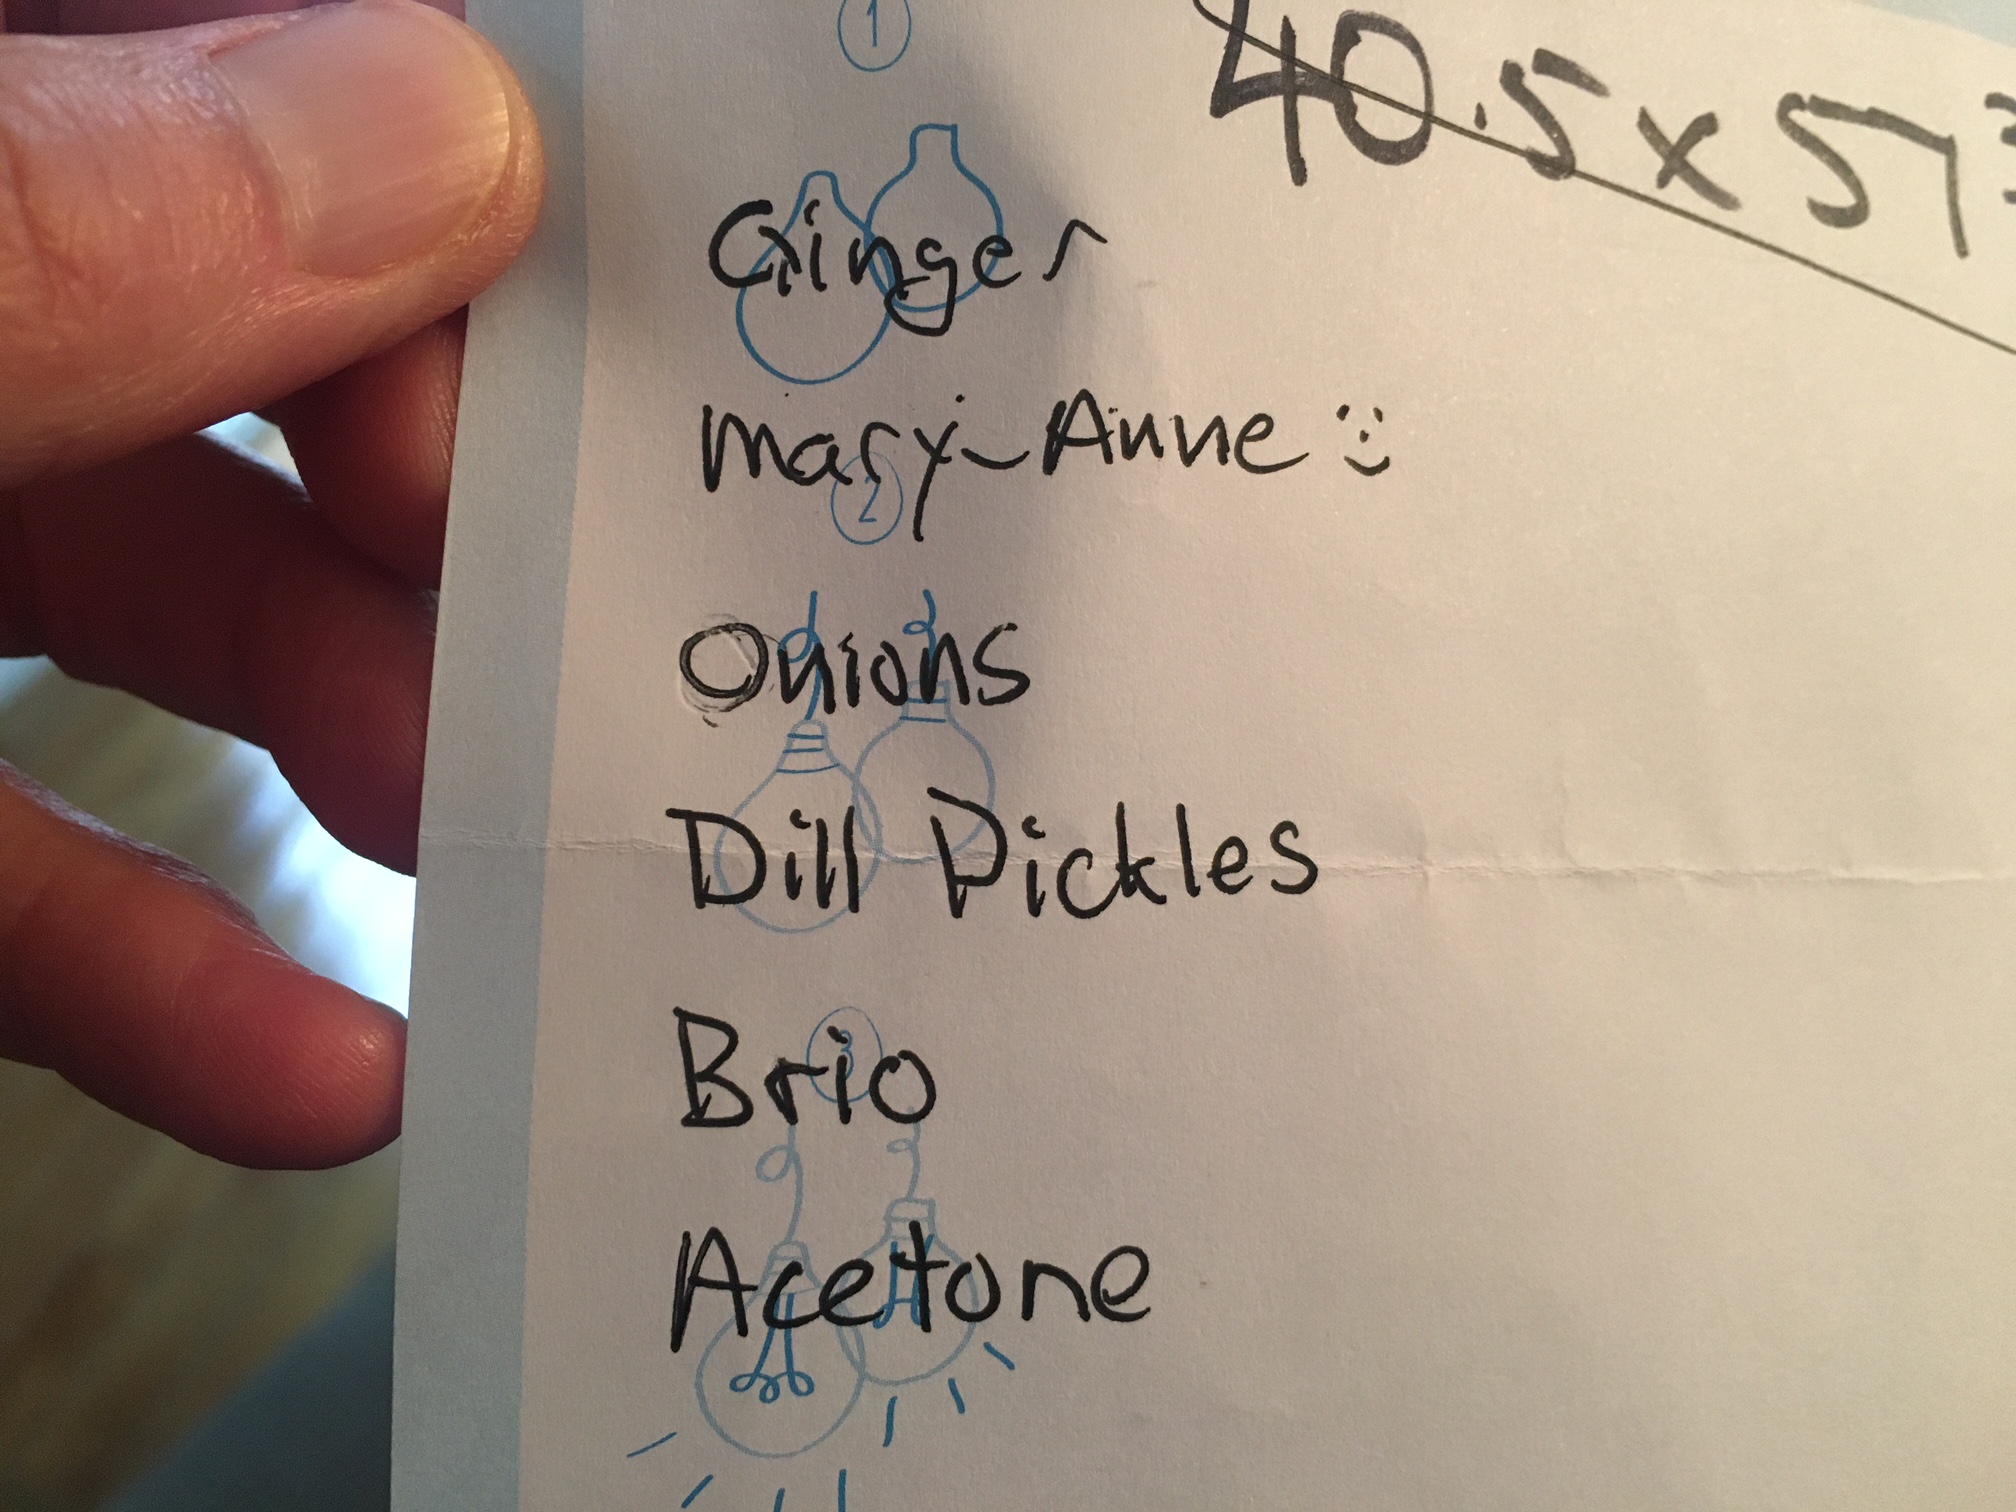 1
40.5 x 57
Ginger
Mary-Anne
2
Onions
Dill Pickles
3
Brio
Acetone